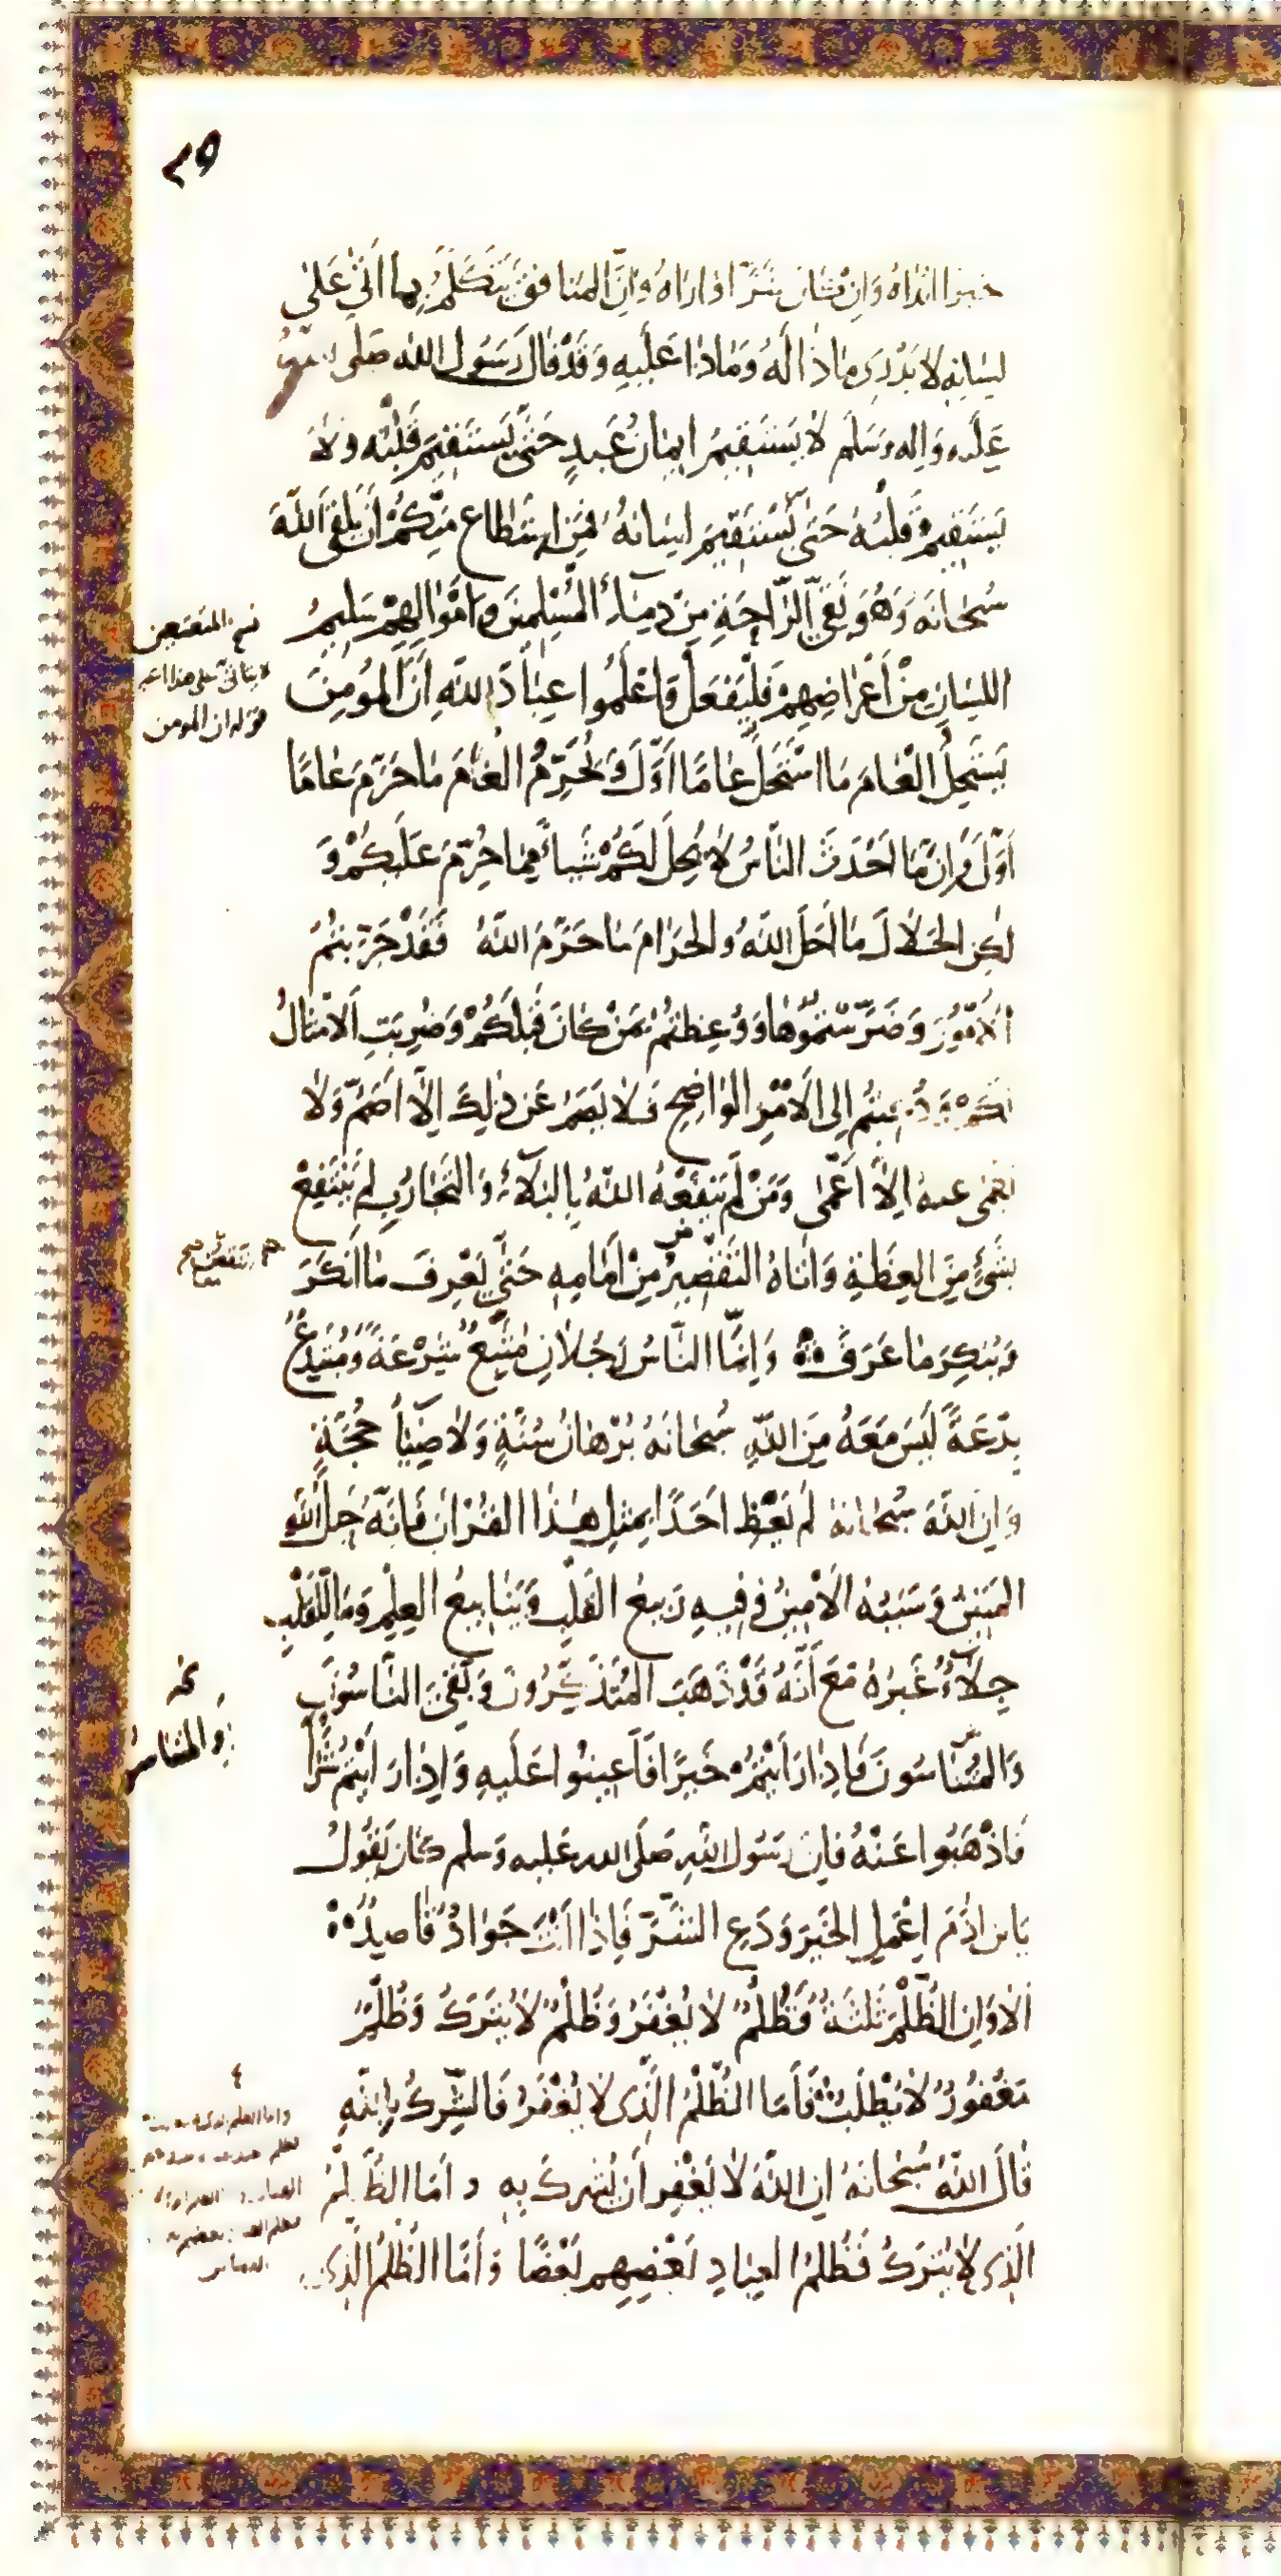 ٣٥
خيرا ابداه وَاِن كَانَ شَرًّا وَاراهُ وَاِنَّ المنافق يَتَكَلَّمُ بِما اَتٰى عَلىٰ
لِسَانِهِ لا يَدْرِى مَاذَا لَهُ وَمَاذا عَلَيهِ وَقَدْ قالَ رَسُول الله صَلى الله
عَلَيه وَاله وَسَلم لا يَسْتَقِيمُ ايمَانُ عَبدٍ حَتّى يَسْتَقِيمَ قَلْبُه وَلا
يَسْتَقِيمُ قَلبُهُ حَتّى يَسْتَقِيمَ لِسَانُهُ فَمَنِ اسْتَطاعَ مِنْكُمْ اَنْ يَلقى اللّٰهَ
سُبْحَانَه وَهُوَ نَقِىُّ الرَّاحَةِ مِنْ دِمَاءِ المُسْلِمينَ وَاَمْوَالِهِمْ سَلِيمُ
اللسَانِ مِنْ اَعْرَاضِهِمْ فَلْيَفعَلْ وَاعْلَمُوا عِبَادَ اللّٰهِ اَنَّ المُومِنَ
يَسْتَحِلُّ العَامَ مَا اسْتَحَلَّ عَامًا اَوَّلَ وَيُحَرِّمُ العَامَ مَا حَرَّمَ عَامًا
اَوَّلَ وَاِنَّ مَا اَحْدَثَ النَّاسُ لا يُحِلُّ لَكُمْ شَيْاً مِمَّا حُرِّمَ عَلَيكُمْ وَ
لكِن الحَلَالَ مَا اَحَلَّ اللّٰهُ وَالحَرَامَ مَا حَرَّمَ اللّٰهُ فَقَدْ جَرَّبتُمُ
الاُمُورَ وَضَرَّسْتُمُوهَا وَوُعِظتُمْ بِمَنْ كَانَ قَبلَكُمْ وَضُرِبَتِ الاَمْثَالُ
لَكُمْ وَدُعِيتُم اِلى الاَمْرِ الوَاضِحِ فَلا يَصَمُّ عَن ذلِكَ اِلّا اَصَمُّ وَلا
يَعْمى عنهُ اِلّا اَعْمىٰ وَمَنْ لَم يَنفَعْهُ اللّٰهُ بِالبَلَاءِ وَالتَّجَارِبِ لَم يَنْتَفِعْ
بِشَىْءٍ مِنَ العِظَةِ وَاَتاهُ التَّقْصِيرُ مِنْ اَمَامِهِ حَتّى يَعْرِفَ مَا اَنكَرَ
وَيُنكِرَ مَا عَرَفَ وَاِنَّمَا النَّاسُ رَجُلَانِ مُتَّبِعٌ شِرْعَةً وَمُبْتَدِعٌ
بِدْعَةً لَيسَ مَعَهُ مِنَ اللّٰهِ سُبْحَانَهُ بُرْهَانُ سُنَّةٍ وَلا ضِيَاءُ حُجَّةٍ
وَاِنَّ اللّٰهَ سُبْحَانَهُ لَم يَعِظْ اَحَدًا بِمثلِ هذَا القُرْانِ فَاِنَّهُ حَبلُ اللّٰهِ
المَتِينُ وَسَبَبُهُ الاَمِينُ وَفِيهِ رَبيعُ القَلْبِ وَيَنَابيعُ العِلْمِ وَمَا لِلقَلْبِ
جِلَاءٌ غَيرُهُ مَعَ اَنَّهُ قَدْ ذَهَبَ المُتَذَكِّرُونَ وَبَقِىَ النَّاسُونَ
وَالمُتَنَاسُونَ فَاِذَا رَاَيْتُمْ خَيرًا فَاَعِينُوا عَلَيهِ وَاِذَا رَاَيْتُمْ شَرًّا
فَاذْهَبُوا عَنْهُ فَاِن رَسُولَ اللهِ صَلّى الله عَليه وَسلم كَانَ يَقُولُ
يَا بن ادَمَ اِعْمَلِ الخَيرَ وَدَعِ الشَّرَّ فَاِذَا اَنْتَ جَوَادٌ قَاصِدٌ
اَلا وَاِن الظُّلْمَ ثَلثَةٌ فَظُلْمٌ لا يُغْفَرُ وَظُلْمٌ لا يُتْرَكُ وَظُلْمٌ
مَغْفُورٌ لا يُطْلَبُ فَاَمَّا الظُّلْمُ الَّذِى لا يُغْفَرُ فَالشِّركُ بِاللّٰهِ
قَالَ اللّٰهُ سُبْحَانَهُ اِن اللّٰهَ لا يَغْفِر اَن يُشرَكَ بِهِ وَاَمَّا الظُّلْمُ
الَّذِى لا يُتْرَكُ فَظُلمُ العِبَادِ بَعْضِهِم بَعْضًا وَاَمَّا الظُّلمُ الَّذِى
قوله ان المومن
والمتناسون